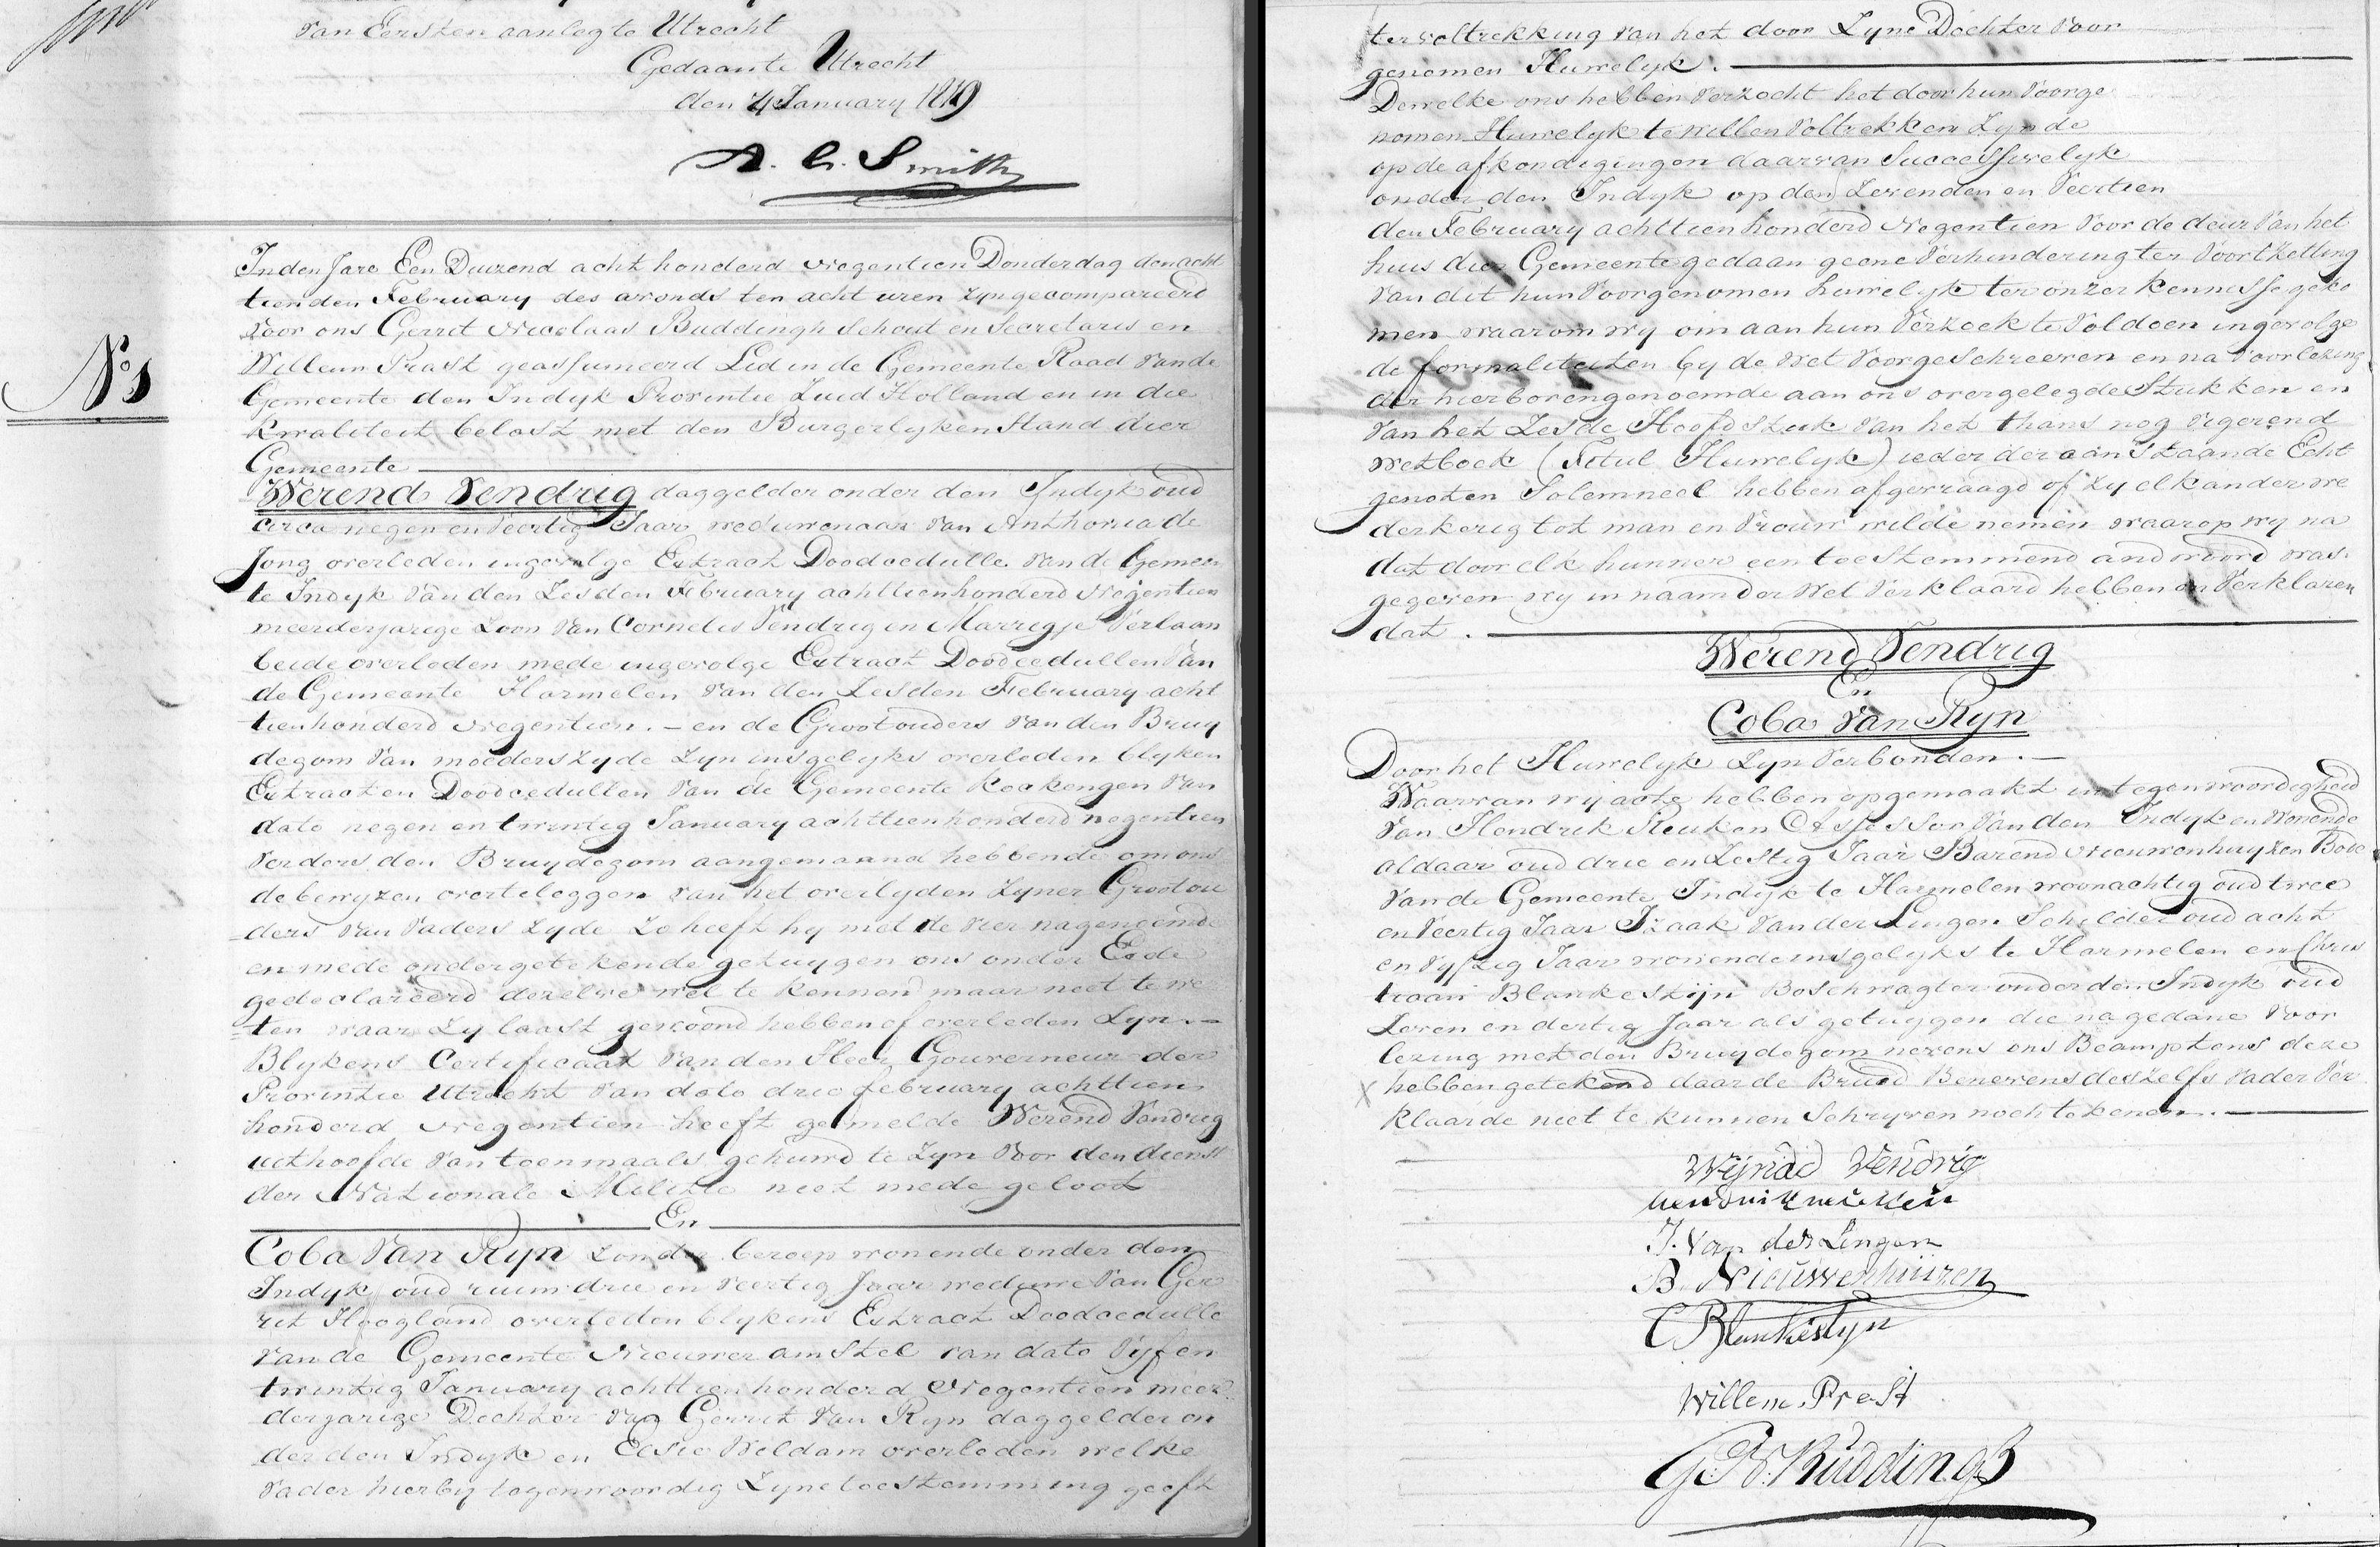 van Eersten aanleg te Utrecht
Gedaan te Utrecht
den 4 January 1819
A. C. Smith
In den Jare Een Duizend acht honderd Negentien Donderdag den acht
tienden February des avonds ten acht uren zyn gecompareerd
voor ons Gerrit Nicolaas Buddingh Schout en Secretaris en
Willem Prast geassumeerd Lid in de Gemeente Raad van de
Gemeente den Indyk Provintie Zuid Holland en in die
kwaliteit belast met den Burgerlyken Stand dier
No 1
Gemeente
Werend Vendrig daggelder onder den Indyk oud
circa negen en veertig Jaar weduwenaar van Anthonia de
Jong overleden ingevolge Extract Doodcedulle van de Gemeen
te Indyk van den Zesden February achttienhonderd Negentien
meerderjarige Zoon van Cornelis Vendrig en Marregje Verlaan
beide overleden mede ingevolge Extract Doodcedullen van
de Gemeente Harmelen van den Zesden February acht
tienhonderd Negentien. – en de Grootouders van den Bruy
degom van moeders zyde zyn insgelyks overleden blyken
Extracten Doodcedullen van de Gemeente Kockengen van
dato negen en twintig January achttienhonderd negentien
verders den Bruydegom aangemaand hebbende om ons
de bewyzen overteleggen van het overlyden zyner Grootou
ders van vaders zyde zo heeft hy met de vier nagenoemde
en mede ondergetekende getuygen ons onder Eede
gedeclareerd dezelve wel te kennen maar niet te we
ten waar zy laast gewoond hebben of overleden zyn. –
Blykens Certificaat van den Heer Gouverneur der
Provintie Utrecht van dato drie february achttien
honderd Negentien heeft gemelde Werend Vendrig
uithoofde van toenmaals gehuwd te zyn voor den dienst
der Nationale Militie niet mede geloot
En
Coba van Ryn zonder beroep wonende onder den
Indyk oud ruim drie en veertig Jaar weduwe van Ger
rit Hoogland overleden blykens Extract Doodcedulle
van de Gemeente Nieuwer amstel van dato vyf en
twintig January achttien honderd Negentien meer
derjarige Dochter van Gerrit van Ryn daggelder on
der den Indyk en Elsie Weldam overleden welke
vader hierby tegenwoordig zyne toestemming geeft
ter voltrekking van het door Zyne Dochter voor
genomen Huwelyk.
Dewelke ons hebben verzocht het door hun voorge
nomen Huwelyk te willen voltrekken zynde
op de afkondigingen daarvan Successivelyk
onder den Indyk op den Zevenden en Veertien
den February achttien honderd Negentien voor de deur van het
huis dier Gemeente gedaan geene verhindering ter voortzetting
van dit hun voorgenomen huwelyk ter onzer kennisse geko
men waarom wy om aan hun verzoek te voldoen ingevolge
de formaliteiten by de wet voorgeschreeven en na voorlezing
der hierboven genoemde aan ons overgelegde Stukken en
van het Zesde Hoofdstuk van het thans nog vigerend
wetboek (Titul Huwelyk) ieder der aanstaande Echt
genoten Solemneel hebben afgevraagd of zy elkander we
derkerig tot man en vrouw wilde nemen waarop wy na
dat door elk hunner een toestemmend andwoord was
gegeven wy in naam der Wet verklaard hebben en verklaren
dat.
Werend Vendrig
En
Coba van Ryn
Door het Huwelyk zyn verbonden. –
Waarvan wy acte hebben opgemaakt in tegenwoordigheid
van Hendrik Reuken Assessor van den Indyk en wonende
aldaar oud drie en zestig Jaar Barend Nieuwenhuyzen Bode
van de Gemeente Indyk te Harmelen woonachtig oud twee
en veertig Jaar Izaak van der Lingen Schilder oud acht
en vyftig Jaar wonende insgelyks te Harmelen en Chris
tiaan Blankestijn Boschwagter onder den Indyk oud
zeven en dertig Jaar als getuygen die na gedane voor
lezing met den Bruydegom nevens ons Beamptens deze
x hebben getekend daar de Bruid Benevens deszelfs vader ver
klaarde niet te kunnen Schryven noch tekenen.
Wijnad Vendrig
hendrik reuken
J. van der Lingen
B. Nieuwenhuizen
C Blankestyn
Willem Prast
G. N. Buddingh